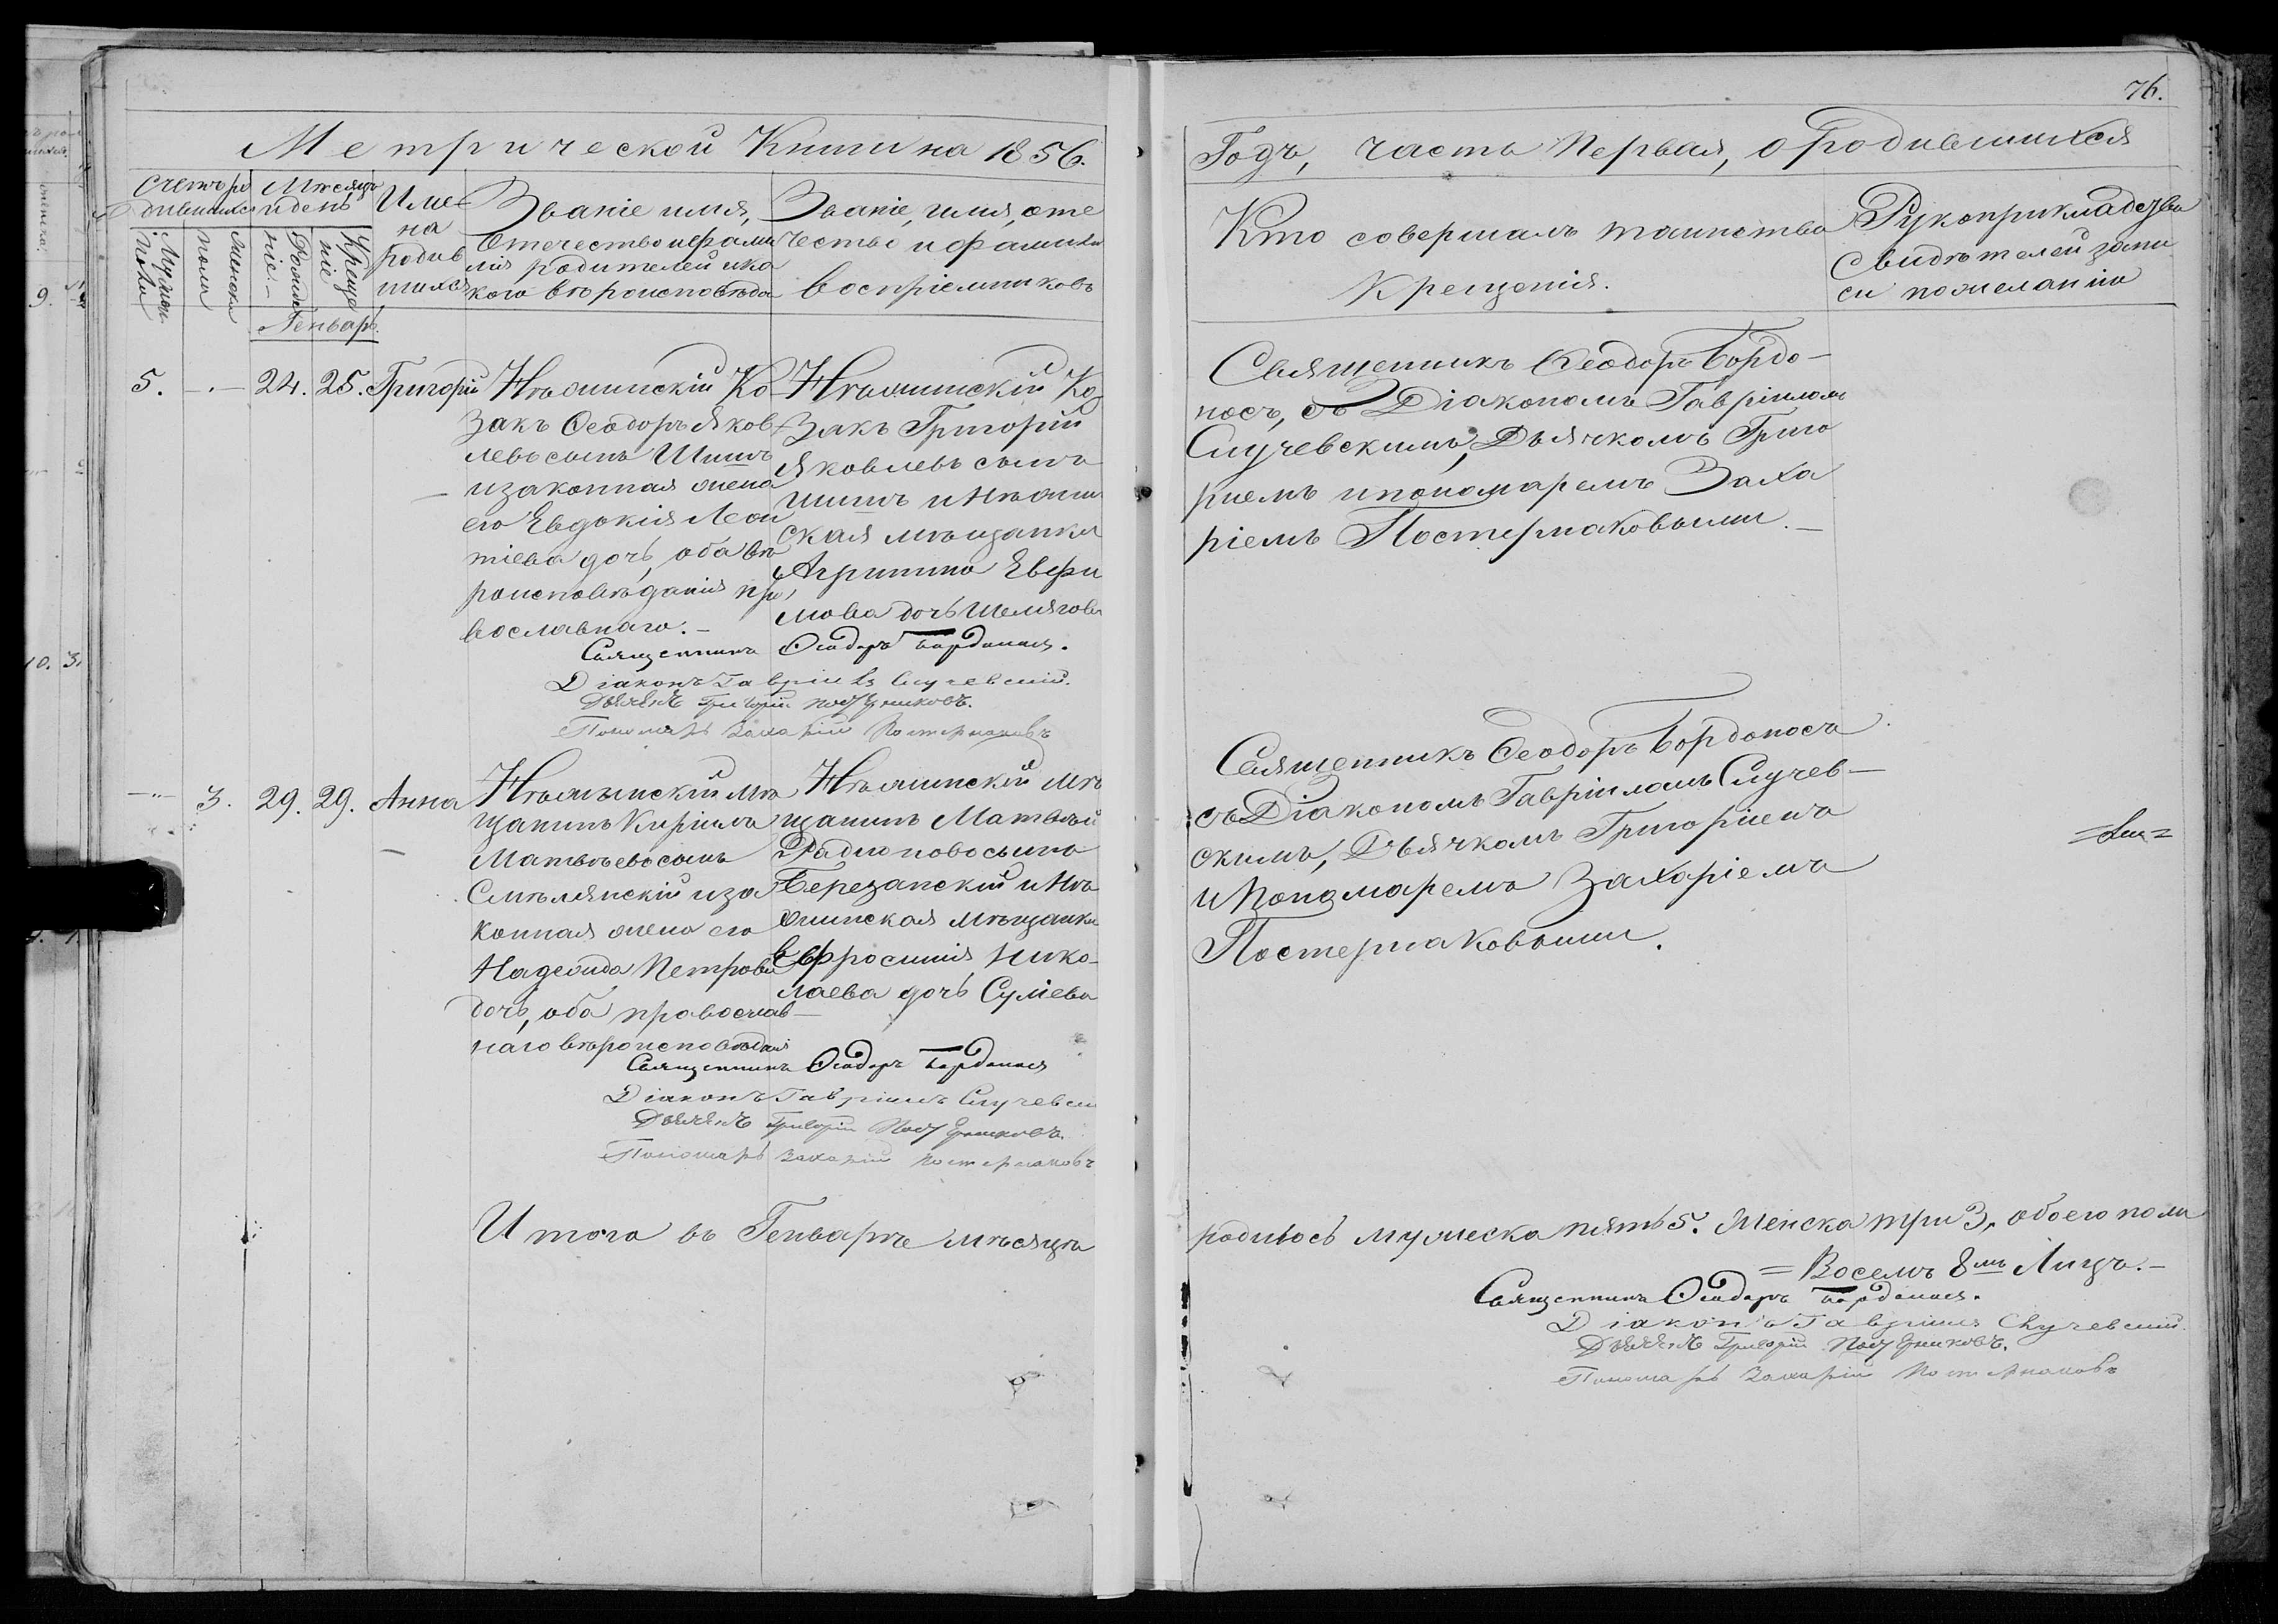 76.
Метрической Книги на 1856.
Годъ, часть Первая, о родившихся
Счетъ ро
дившихся
Мужеска
пола
Женска
пола
Мѣсяцъ
и день
Рожде
ніе
Креще
ніе
Име
на
родив
шихся
Званіе имя,
отечество и фами
лія родителей и ка
кого вѣроисповѣда
Званіе, имя, оте
чество и фамилія
воспріемниковъ
Кто совершалъ таинство
Крещенія.
Рукоприкладство
Свидѣтелей запи
си по желанію
Генварь.
5. 24. 25. Григорій
Нѣжинскій Ко
закъ Ѳеодоръ Яков
левъ сынъ Шишъ
и законная жена
его Евдокія Леон
тіева дочь, оба вѣ
роисповѣданія пра
вославнаго.-
Нѣжинскій Ко
закъ Григорій
Яковлевъ сынъ
Шишъ и Нѣжин
ская мѣщанка
Агрипина Евфи
мова дочь Шемягова
Священникъ Ѳеодоръ Бордоносъ.
Діаконъ Гавріилъ Случевскій.
Дьячекъ Григорій Постернаковъ.
Пономарь Захарій Постернаковъ
Священникъ Ѳеодоръ Бордо-
носъ, съ Діакономъ Гавріиломъ
Случевскимъ, Дьячкомъ Григо
риемъ и пономаремъ Заха
ріемъ Постернаковыми.-
3. 29. 29. Анна
Нѣжинскій мѣ
щанинъ Кирилъ
Матвѣевъ сынъ
Смѣлянскій и за
конная жена его
Надежда Петрова
дочь, оба православ-
наго вѣроисповѣданія
Нѣжинскій мѣ
щанинъ Матвѣй
Радионовъ сынъ
Березанскій и Нѣ
жинская мѣщанка
Евфросинія Нико-
лаева дочь Суліева
Священникъ Ѳеодоръ Бордоносъ
Діаконъ Гавріилъ Случевскі
Дьячекъ Григорій Постернаковъ.
Пономарь Захарій Постернаковъ
Священникъ Ѳеодоръ Бордоносъ
съ Діакономъ Гавріиломъ Случев-
скимъ, Дьячкомъ Григориемъ
и Пономаремъ Захаріемъ
Постернаковыми.
Итого въ Генварѣ мѣсяцѣ
родилось мужеска пять 5. Женска три 3, обоего пола
= Восемъ 8мъ Лицъ.-
Священникъ Ѳеодоръ Бордоносъ.
Діаконъ Гавріилъ Случевскій.
Дьячекъ Григорій Постернаковъ.
Пономарь Захарій Постернаковъ